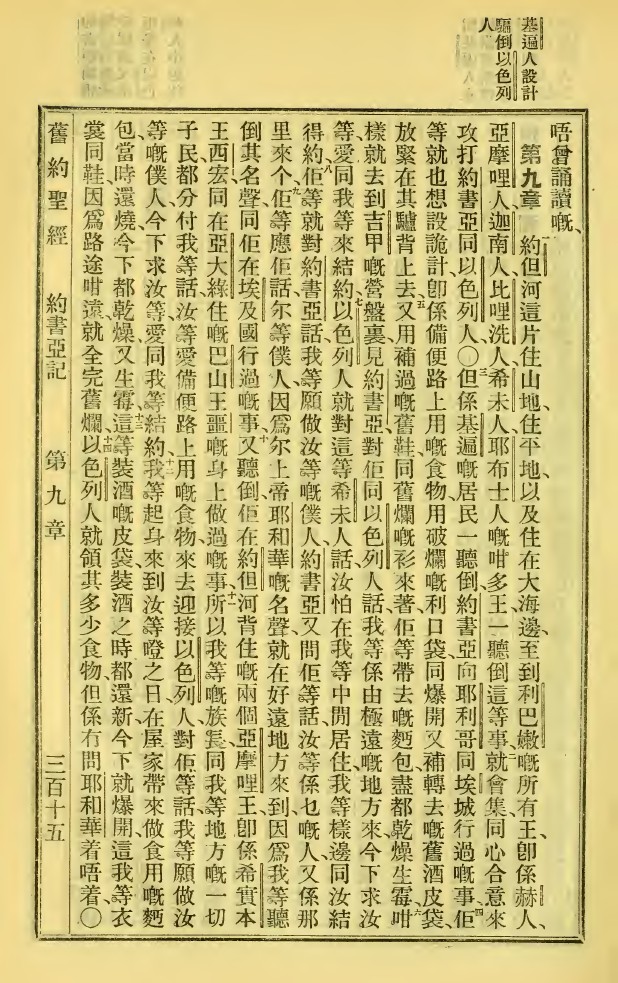 基遍人設計
騙倒以色列
人
唔曾誦讀嘅、
第九章 約但河這片住山地、住平地、以及住在大海邊、至到利巴嫩嘅所有王、卽係赫人、
亞摩哩人、迦南人、比哩洗人、希未人、耶布士人嘅咁多王、一聽倒這等事、二就會集同心合意來
攻打約書亞同以色列人〇三但係基遍嘅居民、一聽倒約書亞向耶利哥同埃城行過嘅事、四佢
等就也想設詭計、卽係備便路上用嘅食物、用破爛嘅利口袋、同爆開又補轉去嘅舊酒皮袋、
放緊在其驢背上去、五又用補過嘅舊鞋、同舊爛嘅衫來著、佢等帶去嘅麪包盡都乾燥生霉、六咁
樣就去到吉甲嘅營盤裏、見約書亞、對佢同以色列人話、我等係由極遠嘅地方來、今下求汝
等愛同我等來結約、七以色列人就對這等希未人話、汝怕在我等中間居住、我等樣邊同汝結
得約、八佢等就對約書亞話、我等願做汝等嘅僕人、約書亞又問佢等話、汝等係乜嘅人、又係那
里來个、九佢等應佢話、尔等僕人、因爲尔上帝耶和華嘅名聲、就在好遠地方來到、因爲我等聽
倒其名聲、同佢在埃及國行過嘅事、十又聽倒佢在約但河背住嘅兩個亞摩哩王、卽係希實本
王西宏、同在亞大綠住嘅巴山王噩嘅身上做過嘅事、十一所以我等嘅族長、同我等地方嘅一切
子民、都分付我等話、汝等愛備便路上用嘅食物、來去迎接以色列人、對佢等話、我等願做汝
等嘅僕人、今下求汝等愛同我等結約、十二我等起身來到汝等噔之日、在屋家帶來做食用嘅麪
包、當時還燒、今下都乾燥又生霉、十三這等裝酒嘅皮袋、裝酒之時都還新、今下就爆開、這我等衣
裳同鞋、因爲路途咁遠、就全完舊爛、十四以色列人就領其多少食物、但係冇問耶和華着唔着、〇
舊約聖經 約書亞記 第九章 三百十五